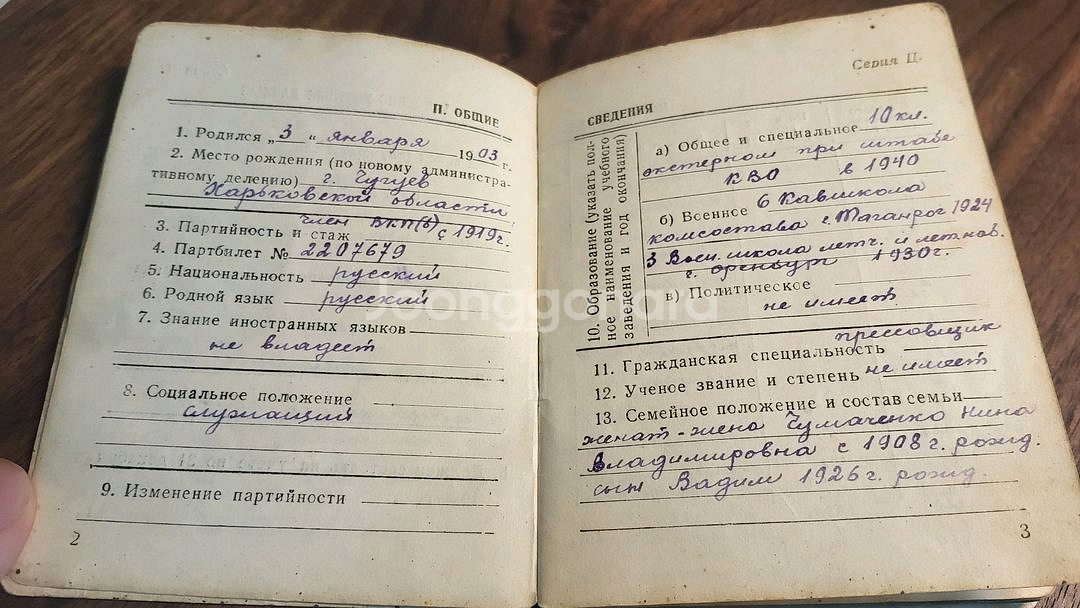 II. ОБЩИЕ
1. Родился „3“ января 1903 г.
2. Место рождения (по новому администра-
тивному делению) г. Чугуев
Харьковской области
член ВКП(б)
3. Партийность и стаж с 1919 г.
4. Партбилет № 2207679
5. Национальность русский
6. Родной язык русский
7. Знание иностранных языков
не владеет
8. Социальное положение
служащий
9. Изменение партийности
2
Серия Ц.
СВЕДЕНИЯ
10. Образование (указать пол-
ное наименование учебного
заведения и год окончания)
а) Общее и специальное 10 кл.
экстерном при штабе
КВО в 1940
б) Военное 6 Кавшкола
комсостава г. Таганрог 1924
3 Воен. школа летч. и летнаб.
г. Оренбург 1930 г.
в) Политическое
не имеет
прессовщик
11. Гражданская специальность
12. Ученое звание и степень не имеет
13. Семейное положение и состав семьи
женат - жена Чумаченко Нина
Владимировна с 1908 г. рожд.
сын Вадим 1926 г. рожд.
3
Joonggonara